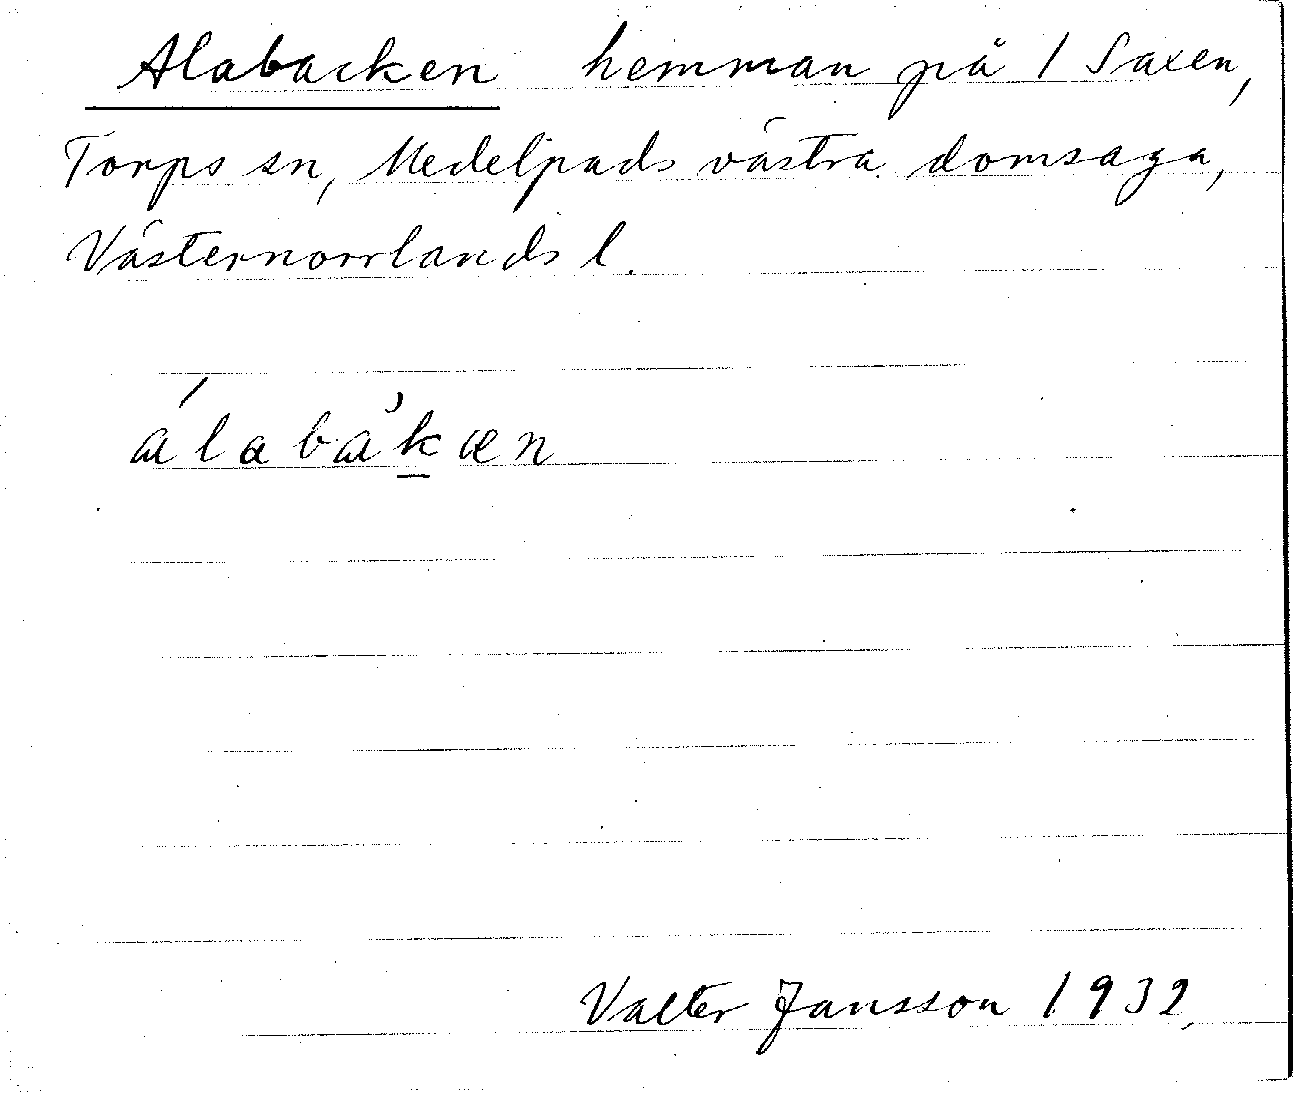 Alabacken hemman på 1 Saxen,
Torps sn, Medelpads västra domsaga,
Västernorrlands l.
álabàk̲æn
Valter Jansson 1932.